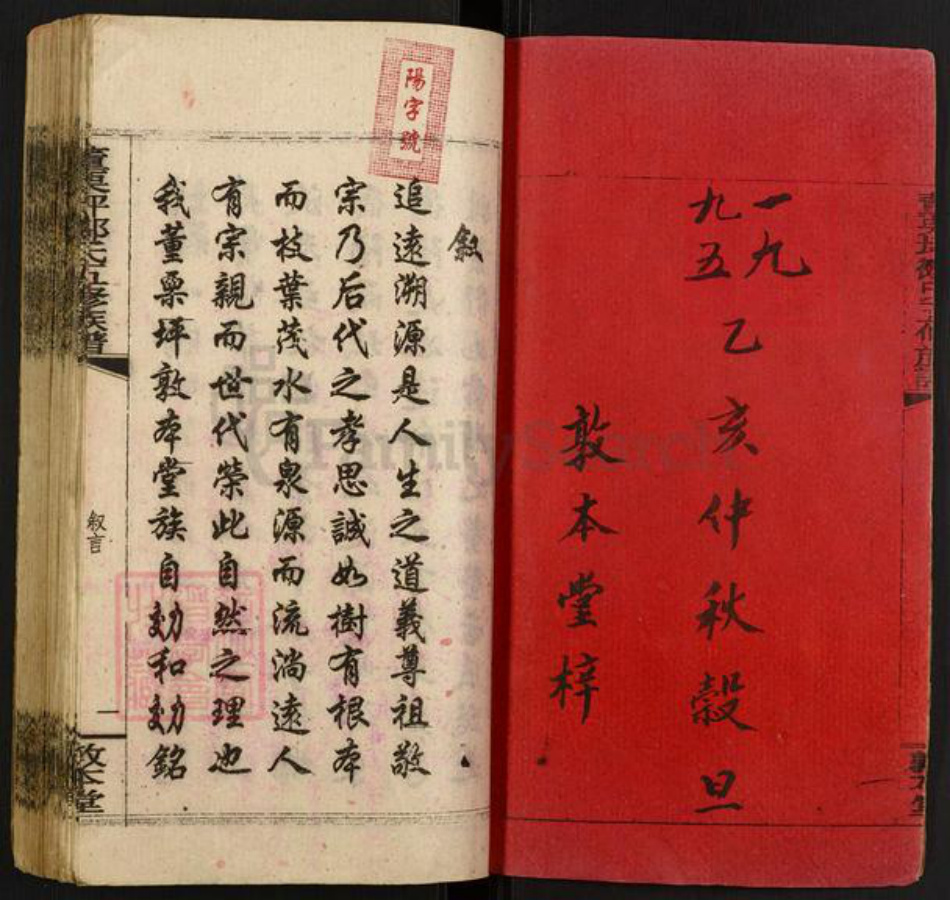 一九
九五
乙亥仲秋穀旦
敦本堂梓
陽字號
敘
追遠溯源是人生之道義尊祖敬
宗乃后代之孝思誠如樹有根本
而枝葉茂水有泉源而流淌遠人
有宗親而世代榮此自然之理也
我董栗坪敦本堂族自効和効銘
氏五修族譜
叙言
一
敦本堂
FamilySearch